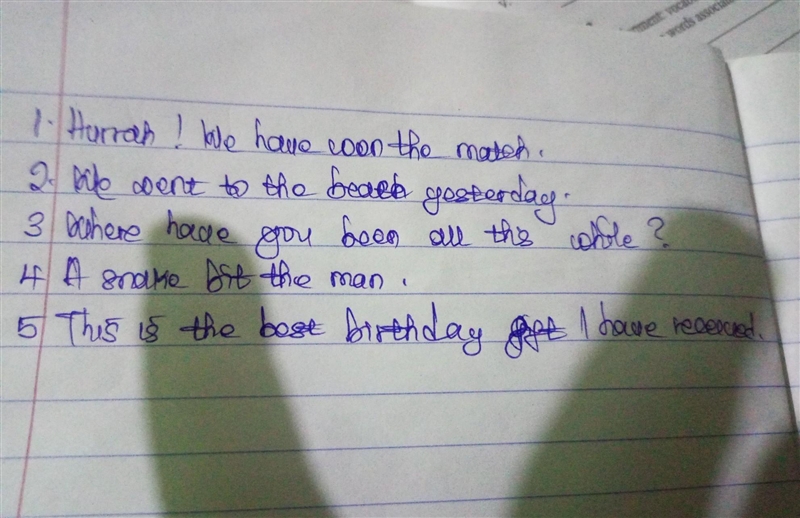 ment: vocabu
words associat
1. Hurrah! We have won the match.
2. We went to the beach yesterday.
3 Where have you been all this while?
4 A snake bit the man.
5 This is the best birthday gift I have received.